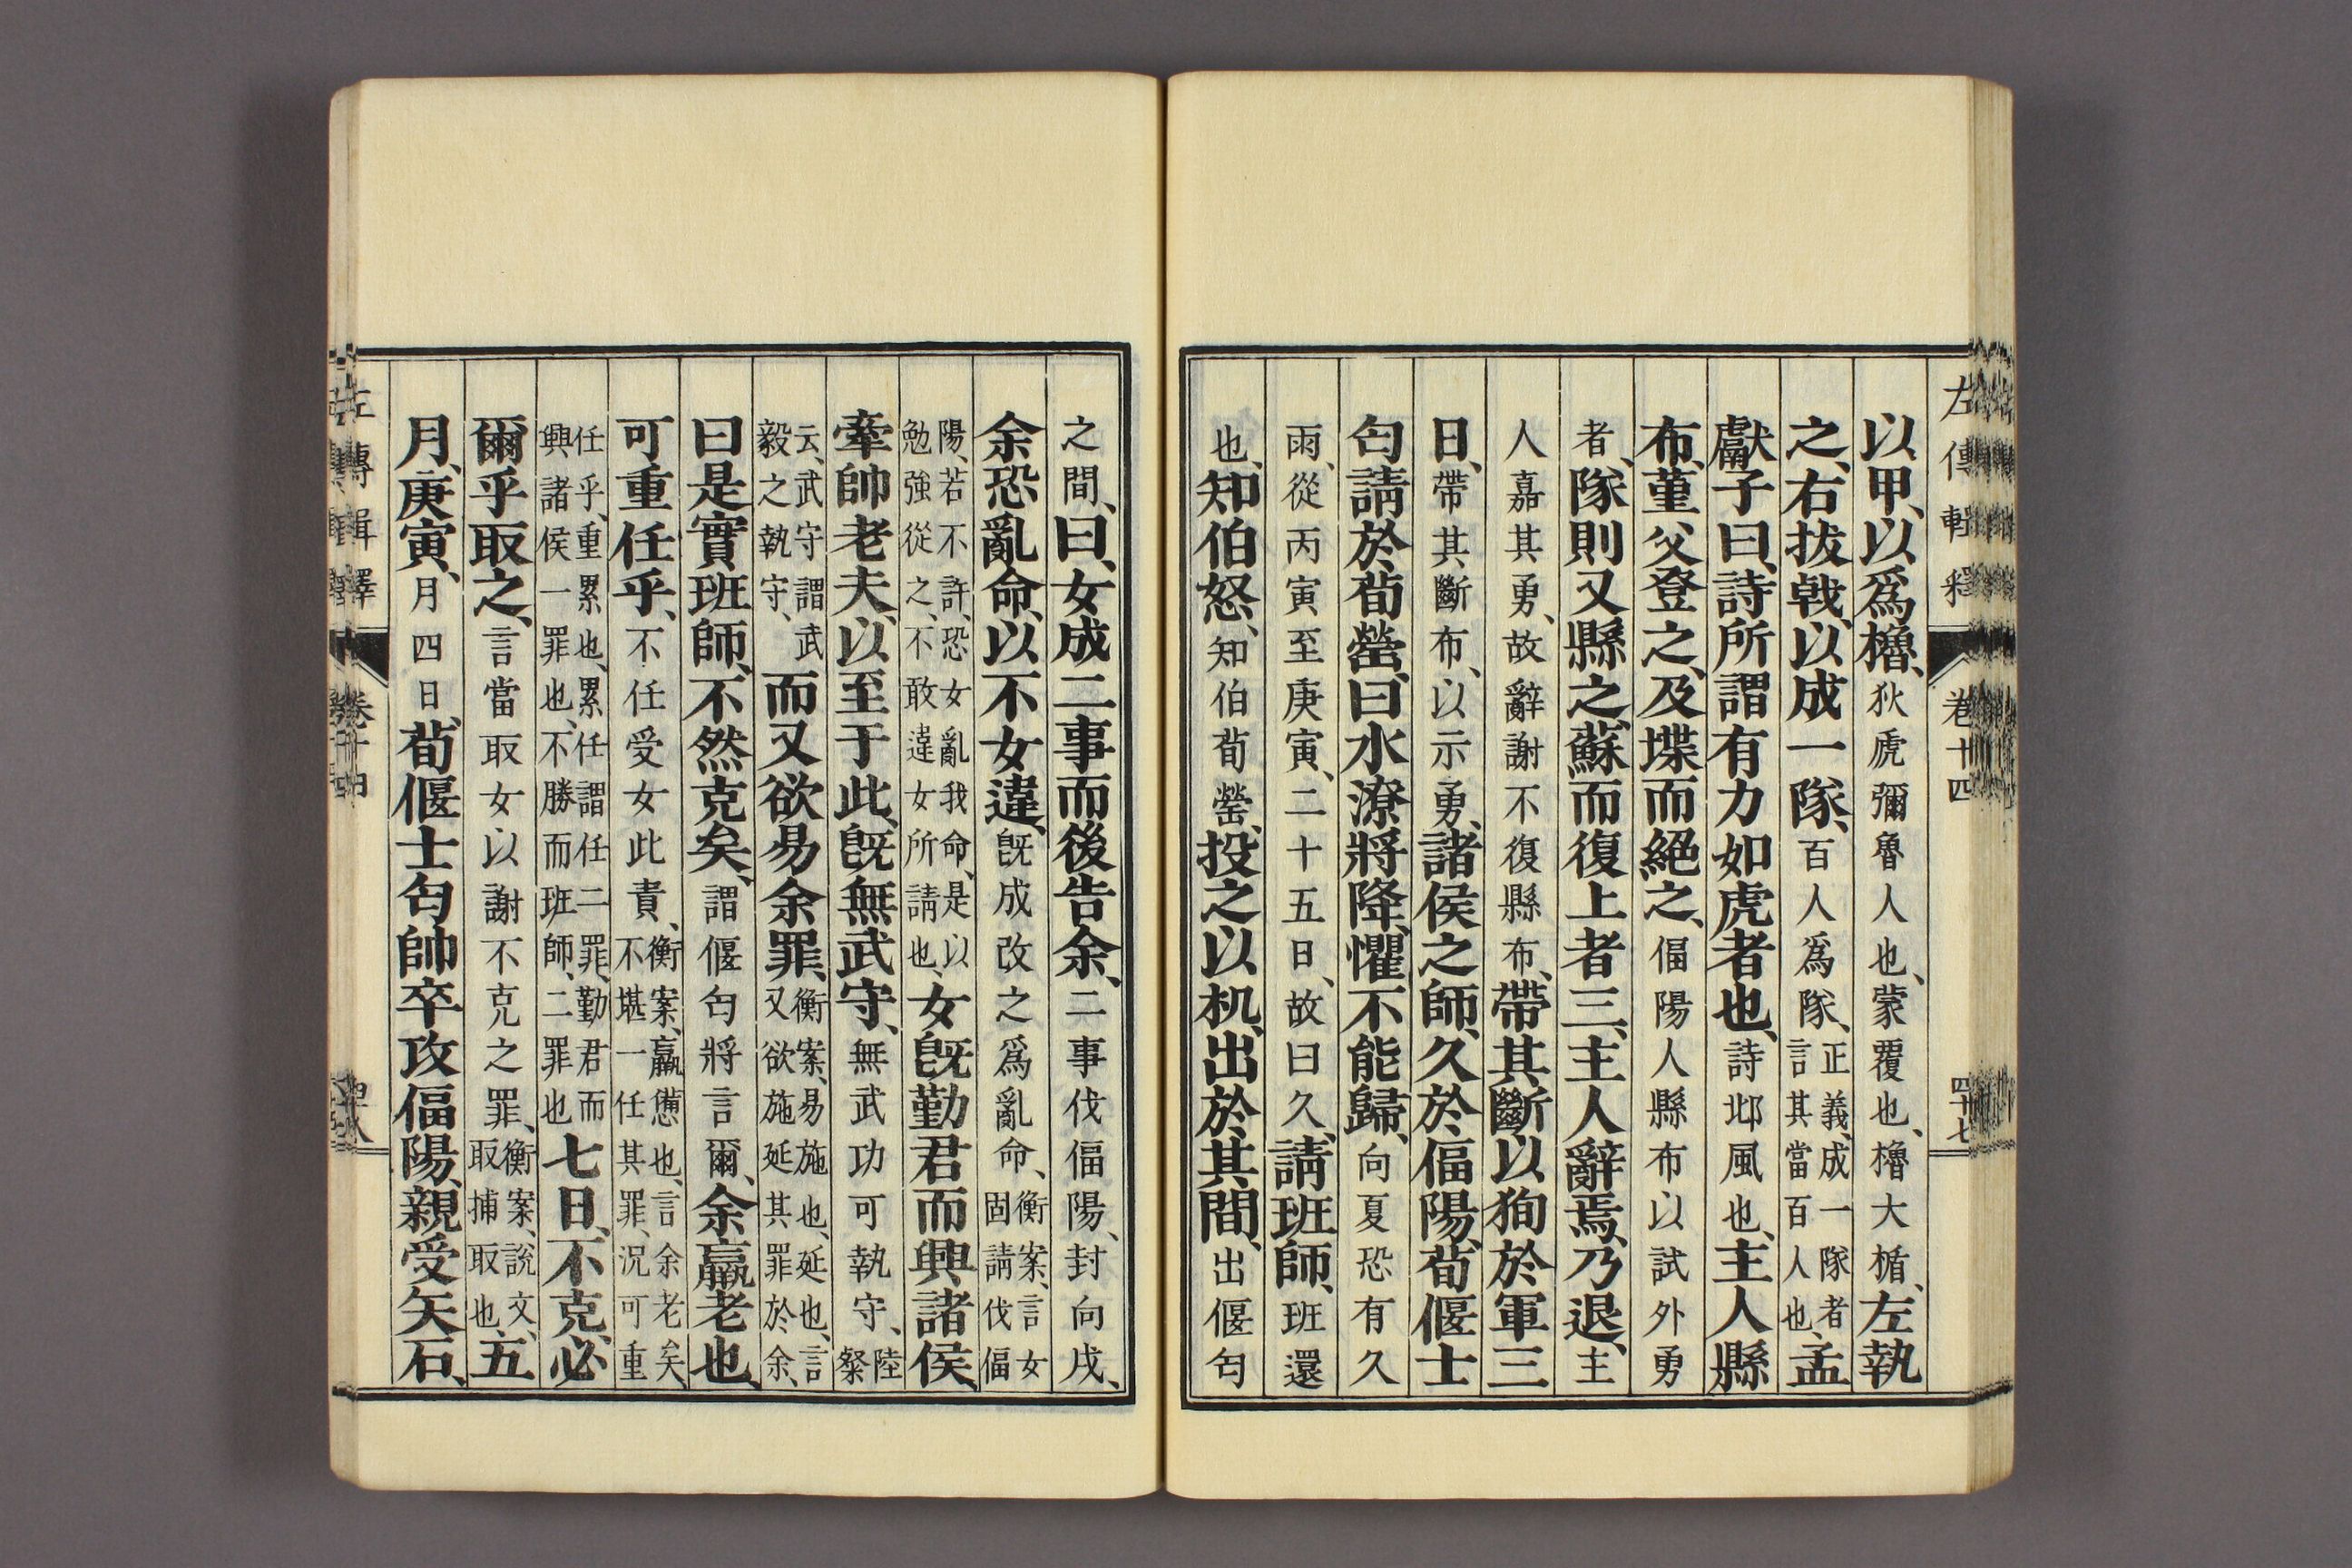 左傳輯釋 卷十四 四十七
以甲、以爲櫓、狄虒彌魯人也、蒙覆也、櫓大楯、左執
之、右拔戟、以成一隊、百人爲隊、正義、成一隊者、言其當百人也、孟
獻子曰、詩所謂有力如虎者也、詩邶風也、主人縣
布、堇父登之、及堞而絕之、偪陽人縣布以試外勇
者、隊則又縣之、蘇而復上者三、主人辭焉、乃退、主
人嘉其勇、故辭謝不復縣布、帶其斷以狥於軍三
日、帶其斷布、以示勇、諸侯之師、久於偪陽、荀偃士
匄請於荀罃、曰水潦將降、懼不能歸、向夏恐有久
雨、從丙寅至庚寅、二十五日、故曰久、請班師、班還
也、知伯怒、知伯荀罃、投之以机、出於其間、出偃匄
之間、曰、女成二事而後告余、二事伐偪陽、封向戌、
余恐亂命、以不女違、旣成改之爲亂命、衡案、言女固請伐偪
陽、若不許、恐女亂我命、是以勉強從之、不敢違女所請也、女旣勤君而興諸侯、
牽帥老夫、以至于此、旣無武守、無武功可執守、陸粲
云、武守謂武毅之執守、而又欲易余罪、衡案、易施也、延也、言又欲施延其罪於余、
曰是實班師、不然克矣、謂偃匄將言爾、余羸老也、
可重任乎、不任受女此責、衡案、羸憊也、言余老矣、不堪一任其罪、況可重
任乎、重累也、累任謂任二罪、勤君而興諸侯一罪也、不勝而班師、二罪也七日、不克、必
爾乎取之、言當取女以謝不克之罪、衡案、說文、取捕取也、五
月、庚寅、月四日、荀偃士匄帥卒攻偪陽、親受矢石、
左傳輯釋 卷十四